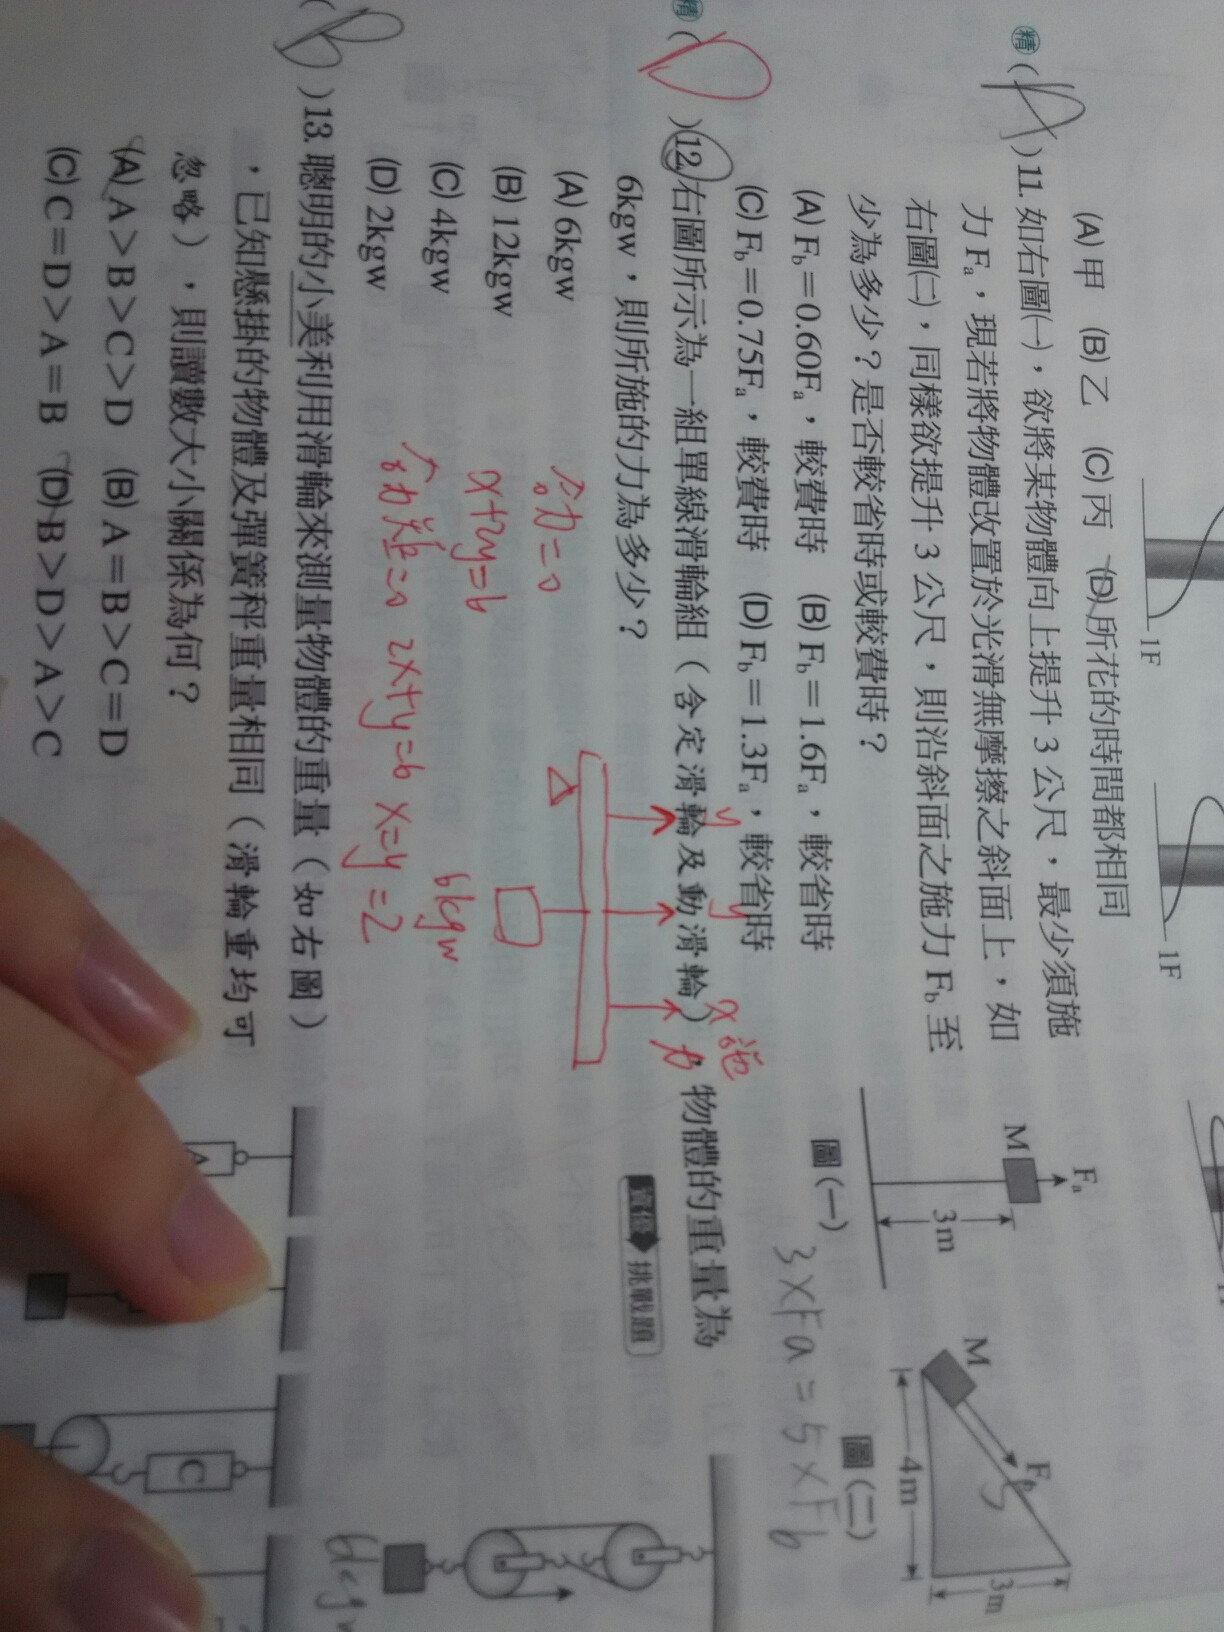 1F
1F
(A)甲 (B)乙 (C)丙 (D)所花的時間都相同
精
(A)11.如右圖㈠,欲將某物體向上提升3公尺,最少須施
力Fa,現若將物體改置於光滑無摩擦之斜面上,如
右圖㈡,同樣欲提升3公尺,則沿斜面之施力Fb至
少為多少?是否較省時或較費時?
(A) Fb=0.60Fa,較費時 (B) Fb=1.6Fa,較省時
(C) Fb=0.75Fa,較費時 (D) Fb=1.3Fa,較省時
Fa
M
3m
圖(一)
M
Fb
5
4m
3m
圖(二)
3×Fa=5×Fb
精
(D)12.右圖所示為一組單線滑輪組(含定滑輪及動滑輪),物體的重量為
6kgw,則所施的力為多少?
資優 挑戰題
(A) 6kgw
(B) 12kgw
(C) 4kgw
(D) 2kgw
y
y
x 施力
合力=0
x+2y=6
合力矩=0 2x+y=6 x=y=2
6kgw
(B)13.聰明的小美利用滑輪來測量物體的重量(如右圖)
,已知懸掛的物體及彈簧秤重量相同(滑輪重均可
忽略),則讀數大小關係為何?
(A) A>B>C>D (B) A=B>C=D
(C) C=D>A=B (D) B>D>A>C
A
C